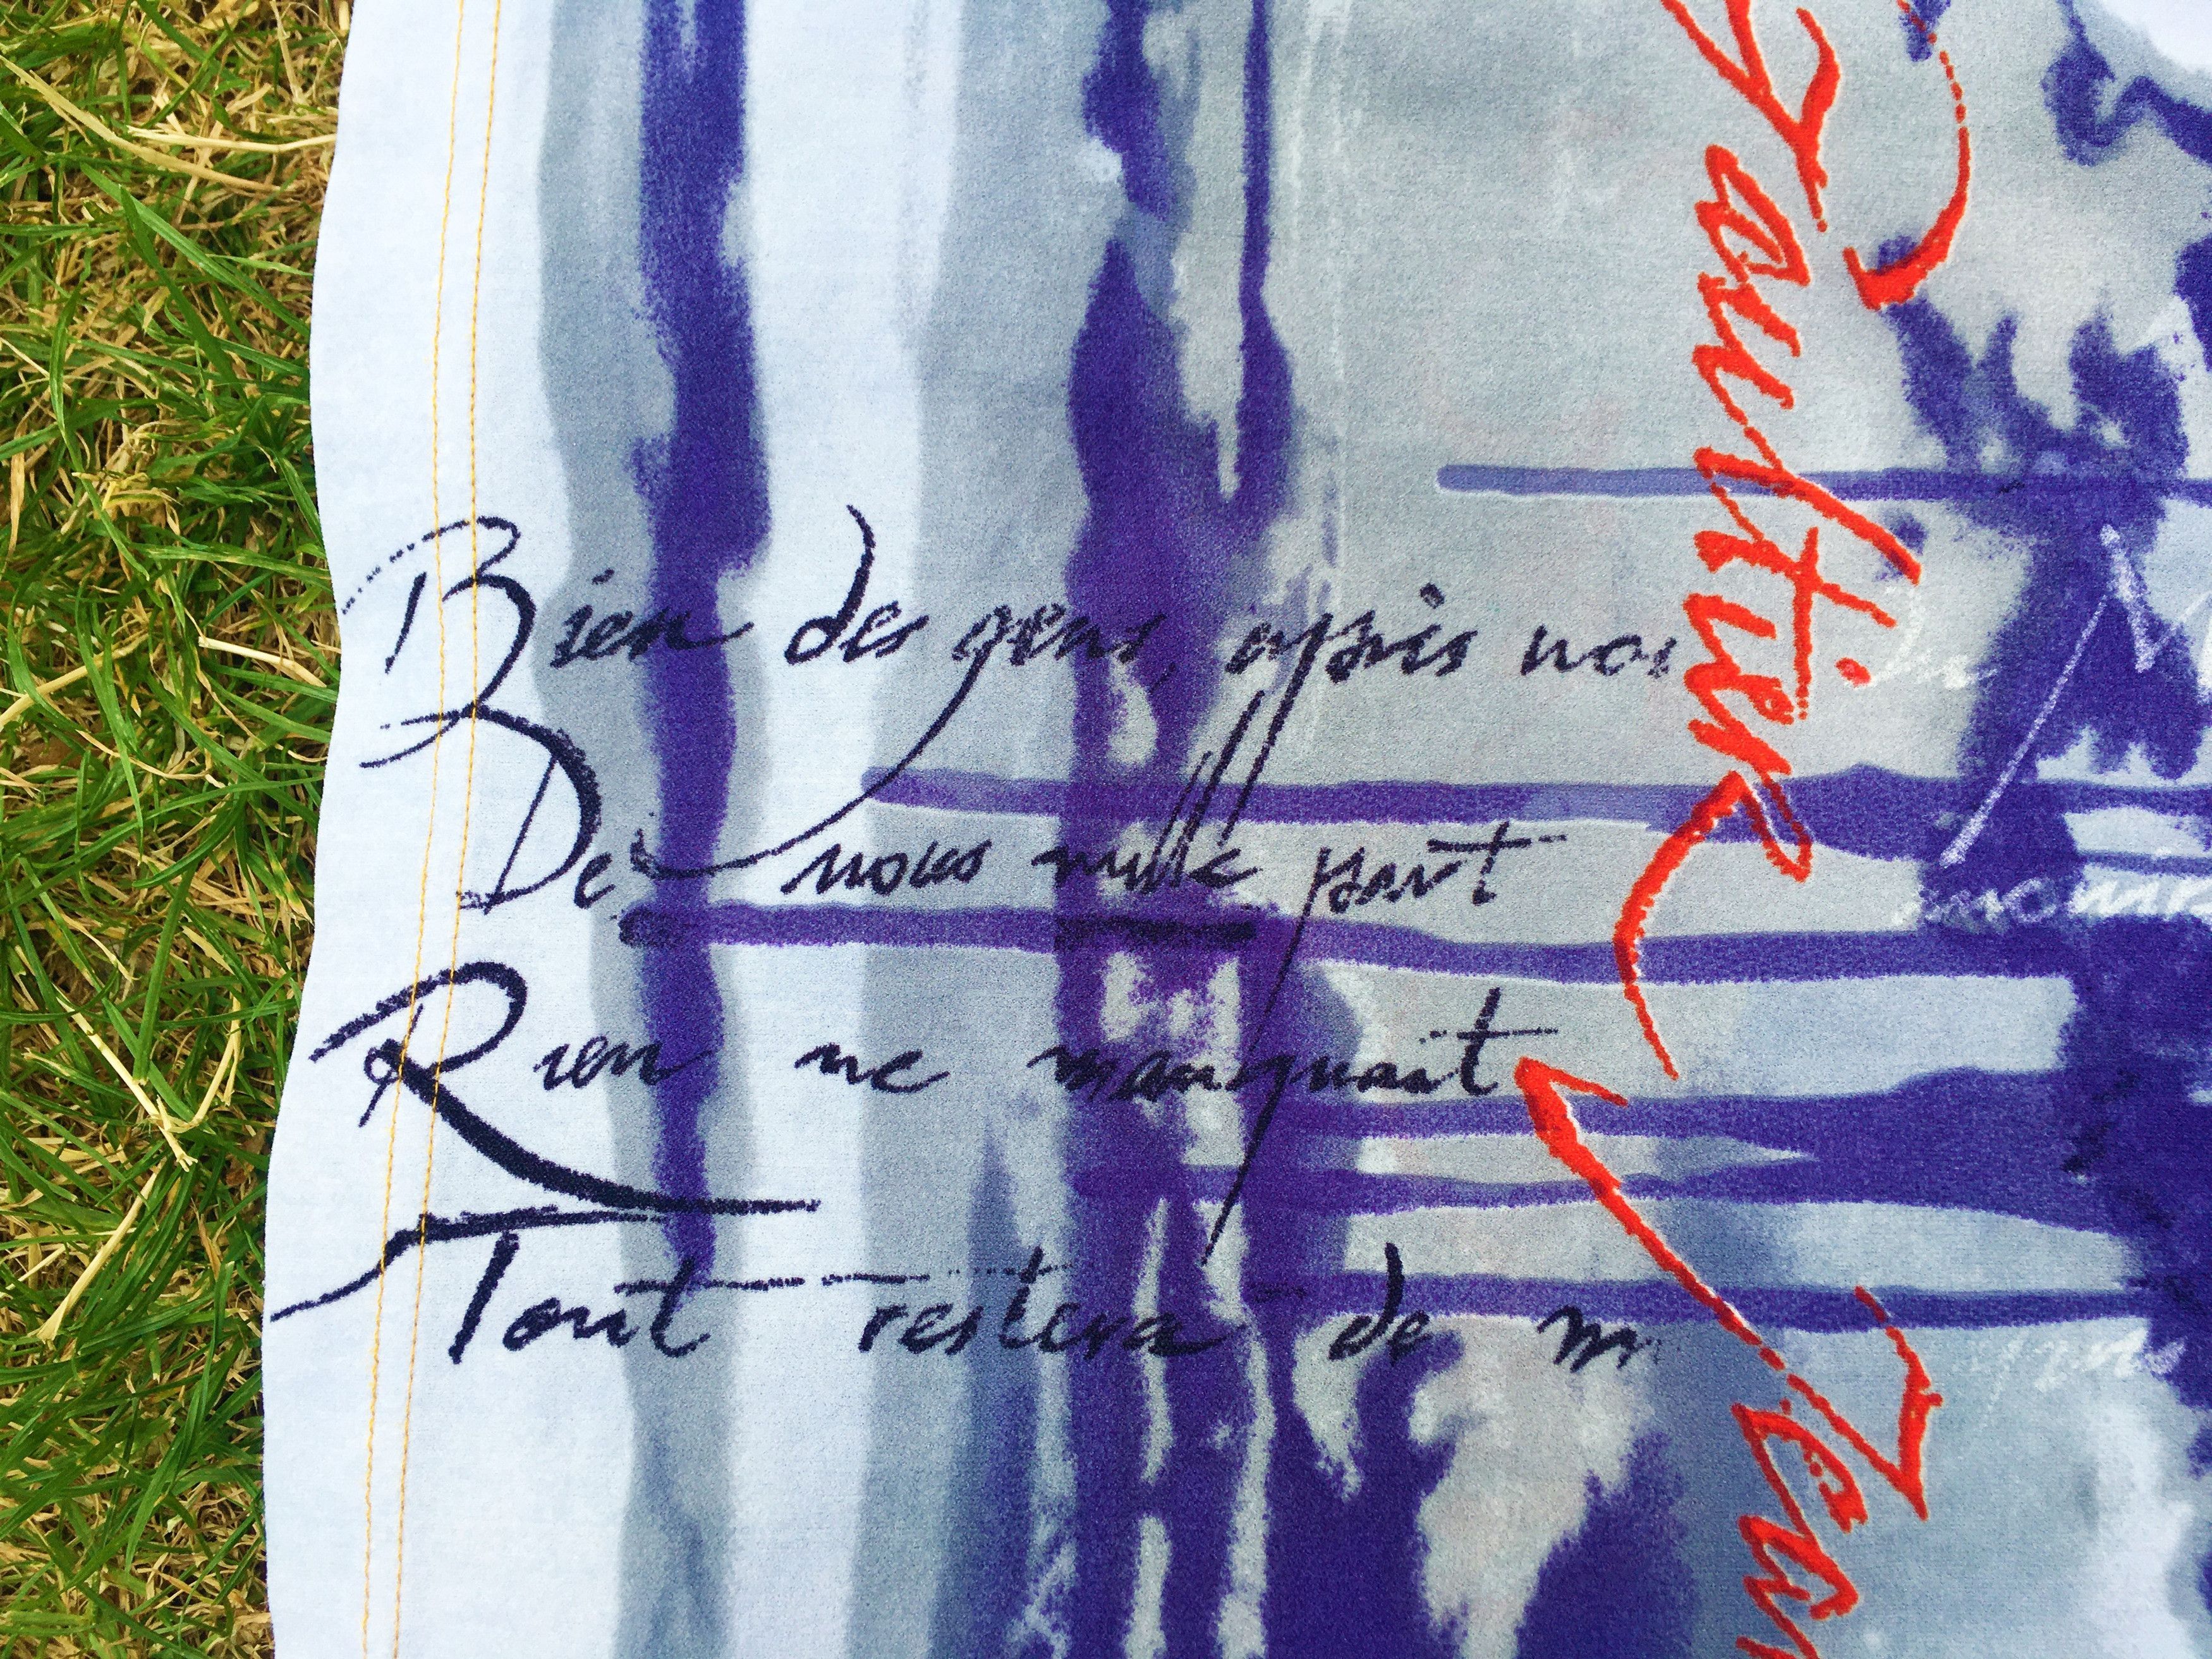 Bien des gens, après nous
De nous nulle part
Rien ne manquait
Tout restera de m
Gaultier
Jean